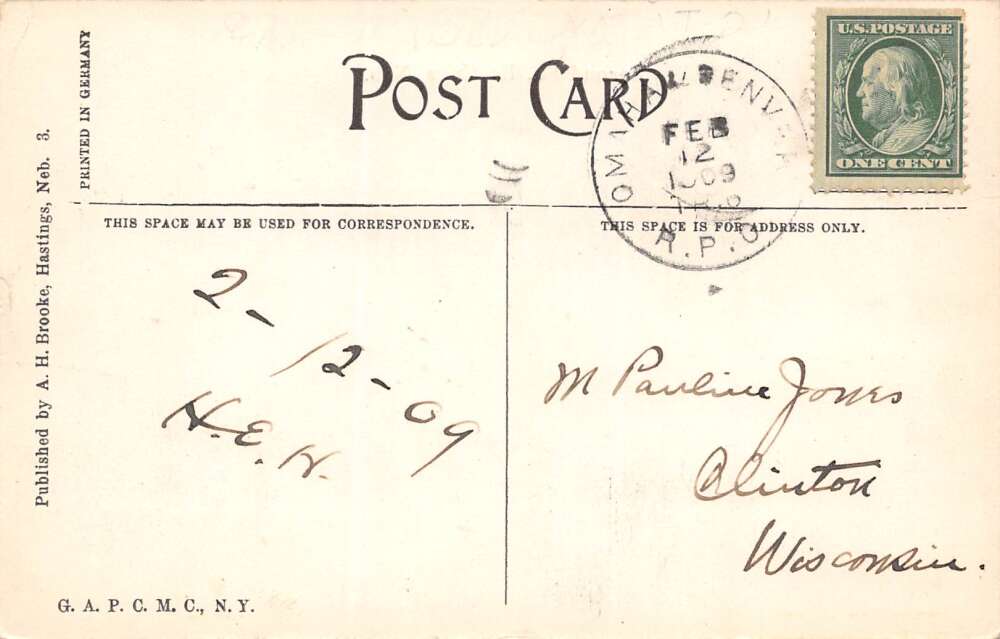 POST CARD
U.S. POSTAGE
ONE CENT
OMAHA & DENVER
FEB
12
1909
R.P.O.
PRINTED IN GERMANY
Published by A. H. Brooke, Hastings, Neb. 3.
THIS SPACE MAY BE USED FOR CORRESPONDENCE.
THIS SPACE IS FOR ADDRESS ONLY.
2-
12-
09
H.E.W.
M Pauline Jones
Clinton
Wisconsin.
G. A. P. C. M. C., N. Y.